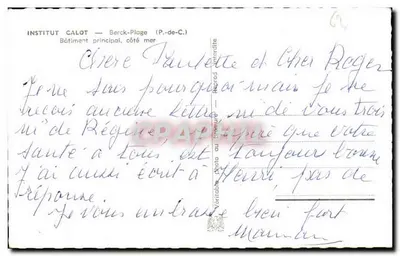 INSTITUT CALOT — Berck-Plage (P.-de-C.)
Bâtiment principal, côté mer
Chère Paulette et Cher Roger
Je ne sais pourquoi mais je ne
reçois aucune lettre ni de vous trois
ni de Régine, que votre
santé à tous est toujours bonne
J'ai aussi écrit à Henri, pas de
réponse.
Je vous embrasse bien fort
Maman